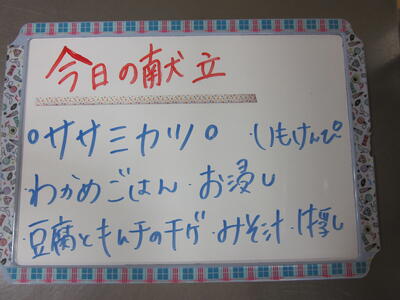 今日の献立
°ササミカツ° ・いもけんぴ
・わかめごはん ・お浸し
・豆腐とキムチのチゲ ・みそ汁 ・牛乳